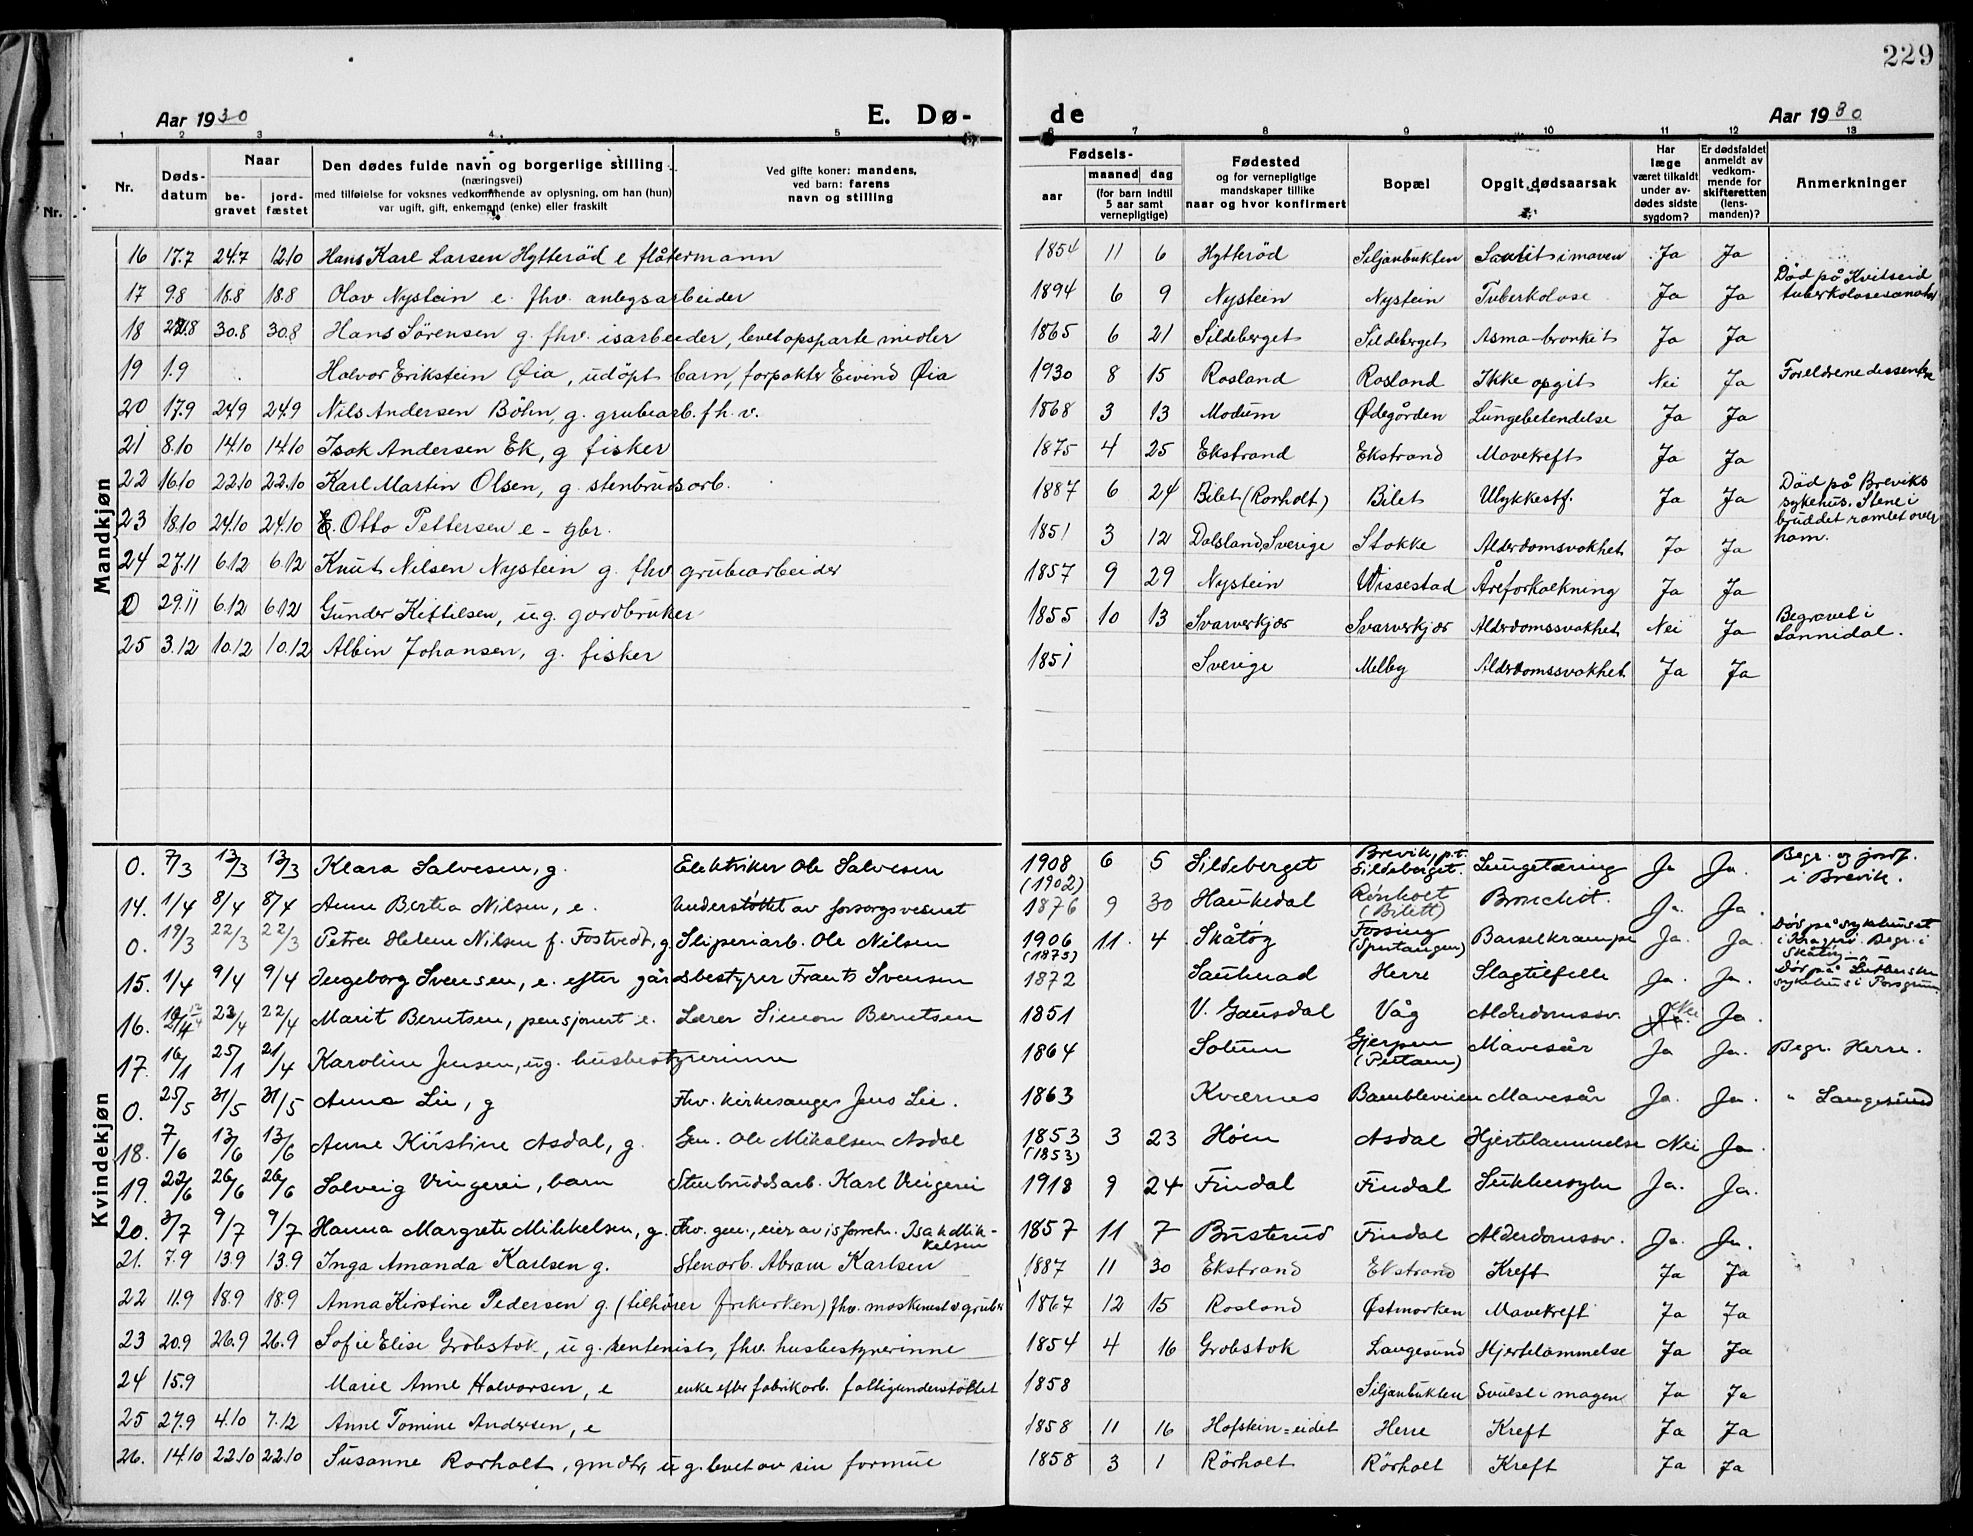 229
Aar 1930 E. Dø- de Aar 1930
1 2 3 4 5 6 7 8 9 10 11 12 13
Nr. Døds-datum Naar be-gravet jord-fæstet Den dødes fulde navn og borgerlige stilling (næringsvei) med tilføielse for voksnes vedkommende av oplysning, om han (hun) var ugift, gift, enkemand (enke) eller fraskilt Ved gifte koner: mandens, ved barn: farens navn og stilling Fødsels- aar maaned dag (for barn indtil 5 aar samt vernepligtige) Fødested og for vernepligtige mandskaper tillike naar og hvor konfirmert Bopæl Opgit dødsaarsak Har læge været tilkaldt under av-dødes sidste sygdom? Er dødsfaldet anmeldt av vedkom-mende for skifteretten (lens-manden)? Anmerkninger
Mandkjøn
16 17.7 24.7 12.10 Hans Karl Larsen Hytterød e flåtermann 1854 11 6 Hytterød Siljanbukten i maven Ja Ja
17 9.8 18.8 18.8 Olav Nystein e. fhv. anlegsarbeider 1894 6 9 Nystein Nystein Tuberkolose Ja Ja Død på Kvitseid tuberkolosesanator
18 30.8 30.8 Hans Sørensen g. fhv. isarbeider, levet opsparte midler 1865 6 21 Sildeberget Sildeberget Asma-bronkit Ja Ja
19 1.9 Halvor Erikstein Øia, udöpt barn, forpakter Eivind Øia 1930 8 15 Rosland Rosland Ikke opgit Nei Ja Foreldrene dissentere
20 17.9 24.9 24.9 Nils Andersen Böhn, g. grubearb. fh.v. 1868 3 13 Modum Ødegården Lungebetendelse Ja Ja
21 8.10 14.10 14.10 Isak Andersen Ek, g fisker 1875 4 25 Ekstrand Ekstrand Mavekreft Ja Ja
22 16.10 22.10 22.10 Karl Martin Olsen, g. stenbrudsarb. 1887 6 24 Bilet (Ronholt) Bilet Ulykkestf. Ja Ja Död på Breviks sykehus. Stene i bruddet ramlet over ham.
23 18.10 24.10 24.10 E. Otto Pettersen e - gbr. 1851 3 12 Dalsland, Sverige Stokke Alderdomsvakhet Ja Ja
24 27.11 6.12 6.12 Knut Nilsen Nystein g. fhv grubearbeider 1857 9 29 Nystein Wissestad Åreforkalkning Ja Ja
0 29.11 6.12 6.12 Gunder Kittilsen, ug. gardbruker 1855 10 13 Svarverkjær Svarverkjær Alderdomssvakhet Nei Ja Begravet i Sannidal.
25 3.12 10.12 10.12 Albin Johansen, g. fisker 1851 Sverige Melby Alderdomssvakhet Ja Ja
Kvindekjøn
0. 7/3 13/3 13/3 Klara Salvesen, g. Elektriker Ole Salvesen 1908 (1902) 6 5 Sildeberget Brevik, p.t. Sildeberget. Lungetæring Ja Ja. Begr. og jordf. i Brevik.
14. 1/4 8/4 8/4 Anne Bertea Nilsen, e. Understøttet av forsorgsvesnet 1876 9 30 Haukedal Rönholt (Bilett) Bronchit. Ja. Ja.
0. 19/3 22/3 22/3 Petra Helene Nilsen f. Fostvedt, g. Sliperiarb. Ole Nilsen 1906 (1875) 11. 4 Skåtøy Fossing (Sprutangen) Barselkrampe Ja. Ja. Død på sykehuset i Kragerø. Begr. i Skåtøy
15. 1/4 9/4 9/4 Ingeborg Svensen, e. efter gårdsbestyrer Frants Svensen 1872 Sauherad Herre Slagtilfelle Ja. Ja. Död på Lutherske sykehus i Porsgrunn
16. 23/4 22/4 Marit Berntsen, pensjonert e. Lærer Simon Berntsen 1851 V. Gausdal Våg Alderdomssv. Ja. Nei Ja.
17. 16/1 25/1 21/4 Karoline Jensen, ug. husbestyrerinne 1864 Solum Gjerpen Mavesår Ja Ja. Begr. Herre.
0. 25/5 31/5 31/5 Anna Lie, g Fhv. kirkesanger Jens Lie. 1863 Kvernes Bambleveien Mavesår Ja. Ja. " Langesund
18. 7/6 13/6 13/6 Anne Kirstine Asdal, g. Gm. Ole Mikalsen Asdal 1853 (1853) 3 23 Høen Asdal Hjertelammelse Nei Ja.
19. 22/6 26/6 26/6 Solveig Vingerei, barn Stenbruddsarb. Karl Vingerei 1918 9 24 Findal Findal Sukkersyke Ja. Ja.
20. 3/7 9/7 9/7 Hanna Margrete Mikkelsen, g. Fhv. gm., eier av isforretn. Isak Mikkelsen 1857 11 7 Busterud Findal Alderdomssv. Ja. Ja.
21. 7.9 13.9 13.9 Inga Amanda Karlsen g. Stenarb. Abram Karlsen 1887 11 30 Ekstrand Ekstrand Kreft Ja Ja
22 11.9 18.9 18.9 Anna Kirstine Pedersen g. (tilhører frikirken) fhv. maskinist v grube 1867 12 15 Rosland Østmarken Mavekreft Ja Ja
23 20.9 26.9 26.9 Sofie Elise Grobstok, ug. rentenist, fhv. husbestyrerinne 1854 4 16 Grobstok Langesund Hjertelammelse Ja Ja
24 15.9 Marie Anne Halvorsen, e enke efter fabrikarb. fattigunderstöttet 1858 Siljanbukten Svulst i magen Ja Ja
25 27.9 4.10 7.12 Anne Tomine Andersen, e 1858 11 16 Hofsken=eidet Herre Kreft Ja Ja
26. 14.10 22.10 22.10 Susanne Rørholt, gmdtr, ug. levet av sin formue 1858 3 1 Rörholt Rörholt Kreft Ja Ja